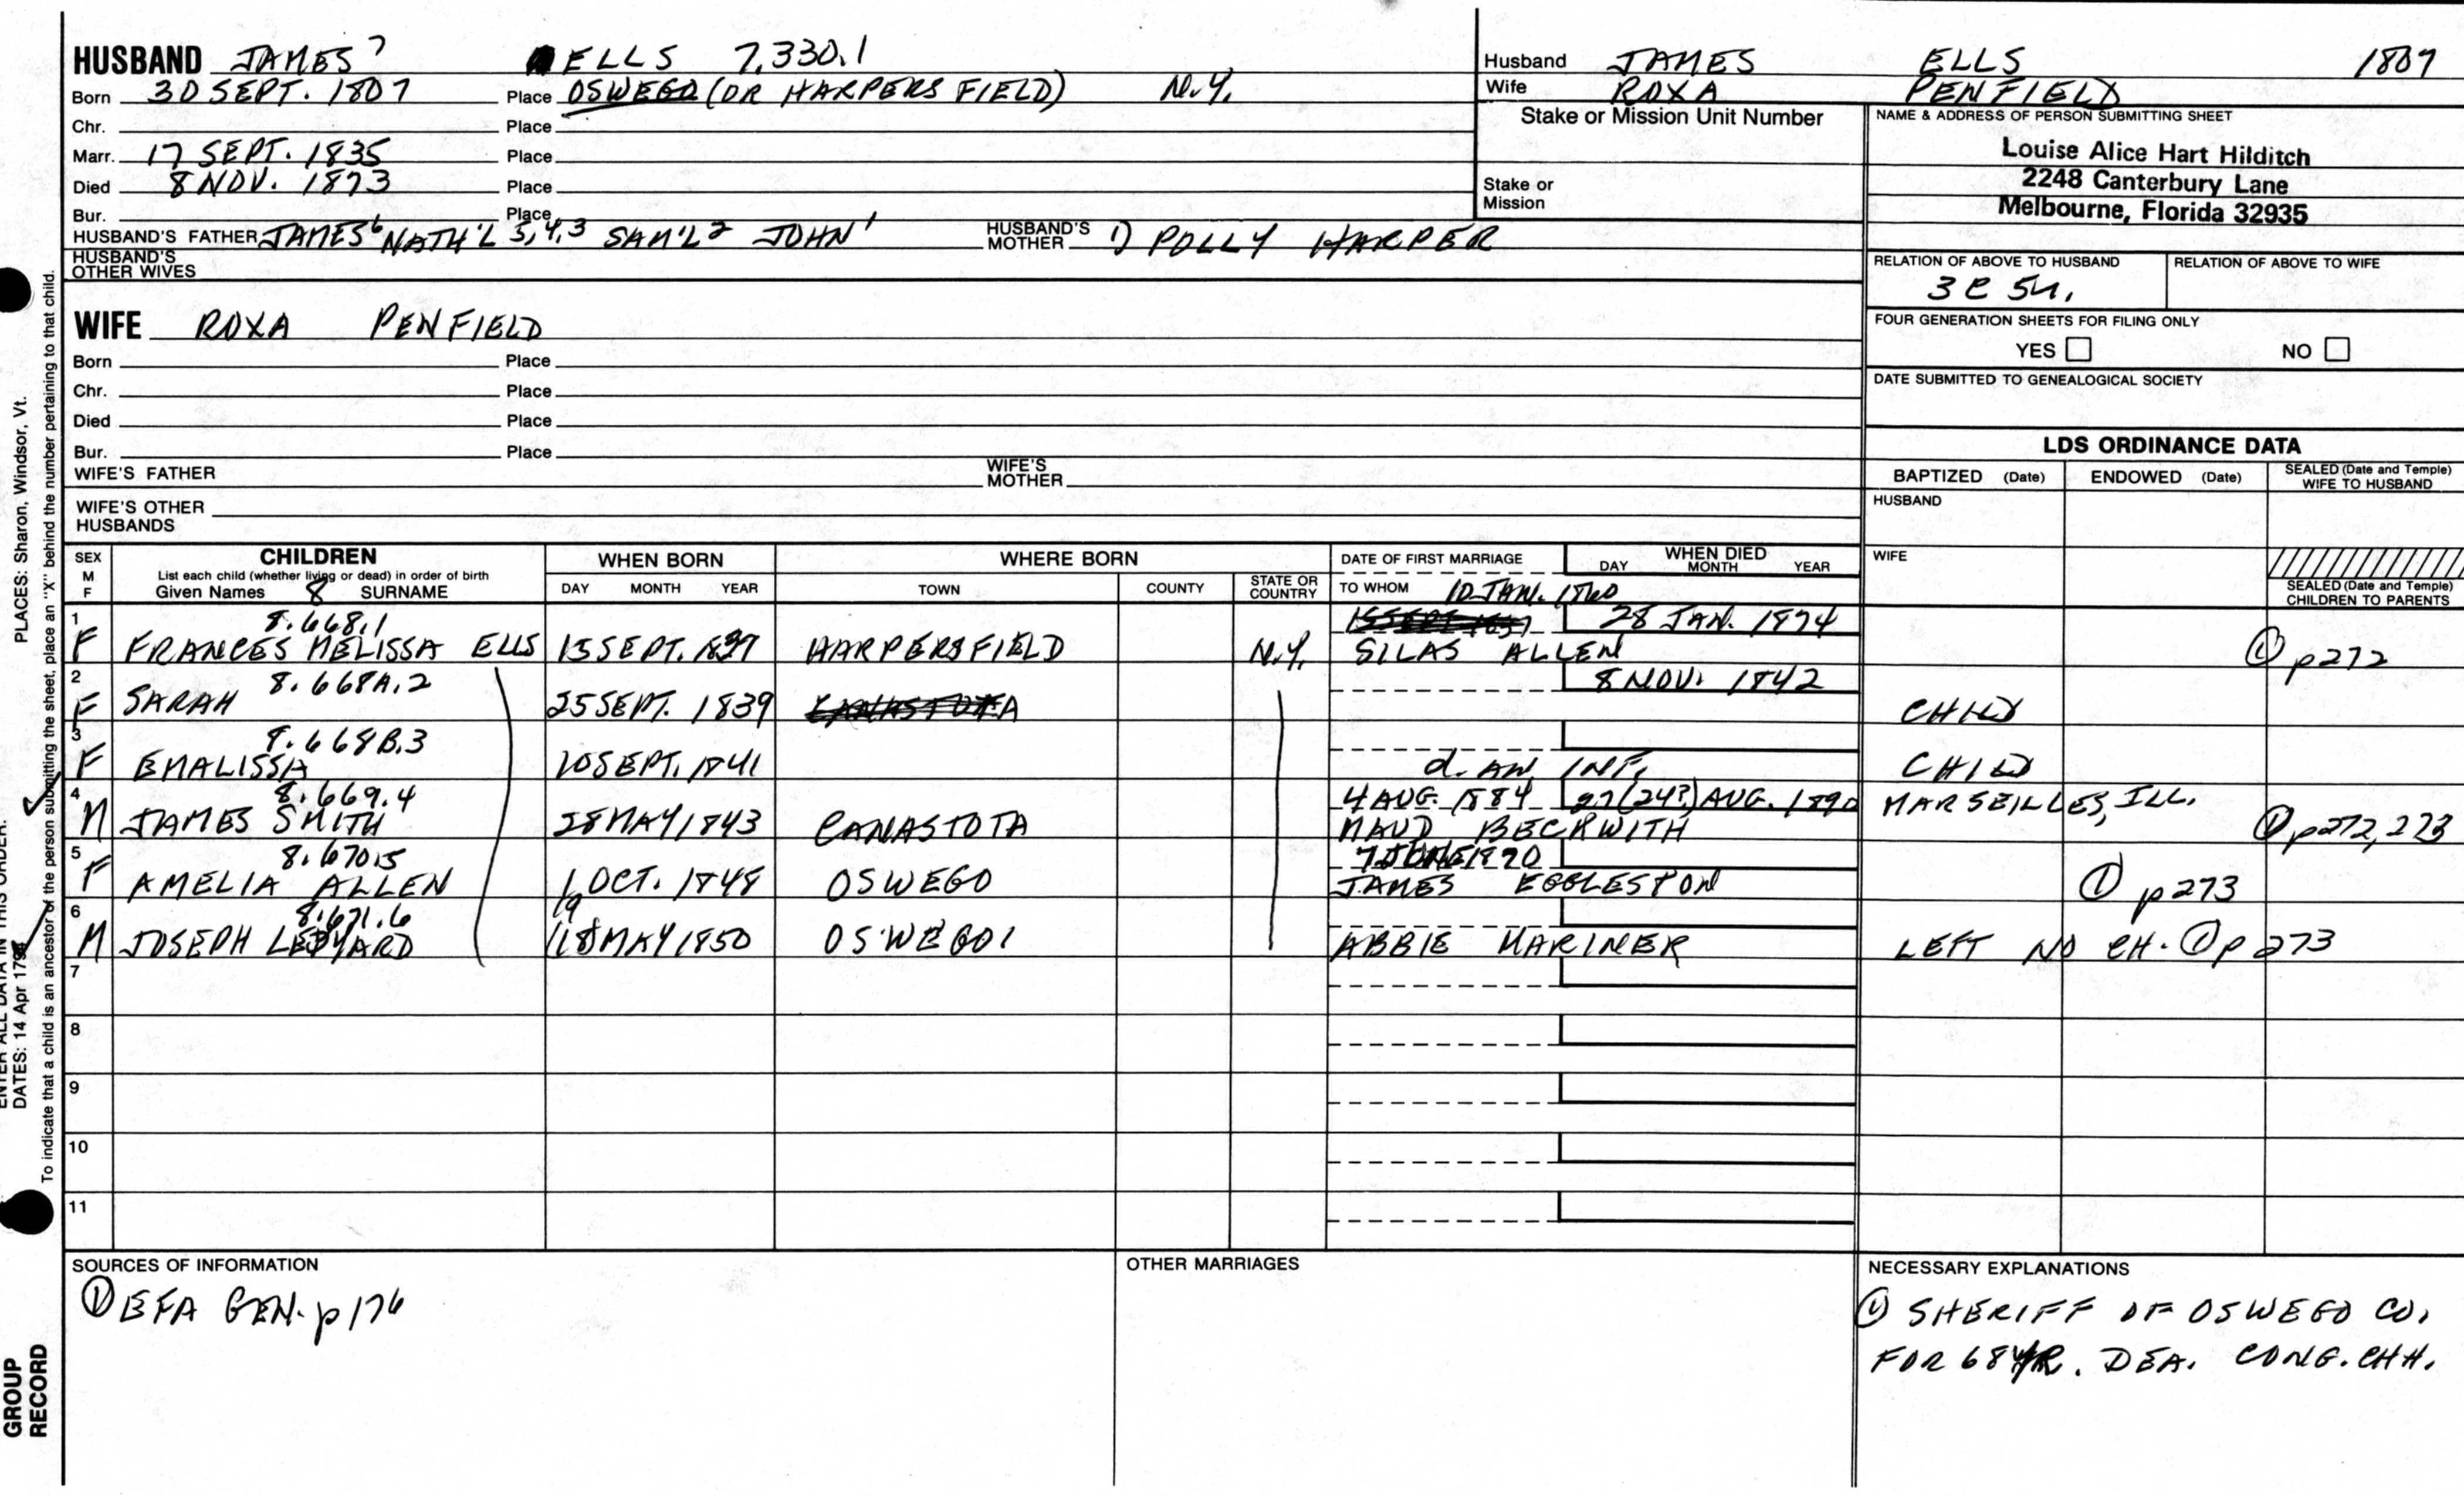 HUSBAND JAMES 7 ELLS 7.330.1
Born 30 SEPT. 1807 Place OSWEGO (OR HARPERS FIELD) N.Y.
Chr. Place
Marr. 17 SEPT. 1835 Place
Died 8 NOV. 1873 Place
Bur. Place
HUSBAND'S FATHER JAMES 6 NATH'L 5,4,3 SAM'L 2 JOHN 1 HUSBAND'S MOTHER 1) POLLY HARPER
HUSBAND'S OTHER WIVES
WIFE ROXA PENFIELD
Born Place
Chr. Place
Died Place
Bur. Place
WIFE'S FATHER WIFE'S MOTHER
WIFE'S OTHER HUSBANDS
Husband JAMES ELLS 1807
Wife ROXA PENFIELD
Stake or Mission Unit Number
Stake or Mission
NAME & ADDRESS OF PERSON SUBMITTING SHEET
Louise Alice Hart Hilditch
2248 Canterbury Lane
Melbourne, Florida 32935
RELATION OF ABOVE TO HUSBAND RELATION OF ABOVE TO WIFE
FOUR GENERATION SHEETS FOR FILING ONLY
YES NO
DATE SUBMITTED TO GENEALOGICAL SOCIETY
LDS ORDINANCE DATA
BAPTIZED (Date) ENDOWED (Date) SEALED (Date and Temple) WIFE TO HUSBAND
HUSBAND
WIFE
SEALED (Date and Temple) CHILDREN TO PARENTS
SEX M F CHILDREN WHEN BORN WHERE BORN DATE OF FIRST MARRIAGE WHEN DIED
List each child (whether living or dead) in order of birth
Given Names 8 SURNAME DAY MONTH YEAR TOWN COUNTY STATE OR COUNTRY TO WHOM DAY MONTH YEAR
10 JAN. 1860
1 8.668.1 28 JAN. 1874
F FRANCES MELISSA ELLS 15 SEPT. 1837 HARPERSFIELD N.Y. SILAS ALLEN ① p272
2 8.668A.2 8 NOV. 1842
F SARAH 25 SEPT. 1839 CANASTOTA CHILD
3 8.668B.3
F EMALISSA 20 SEPT. 1841 d. AN INF. CHILD
4 8.669.4 4 AUG. 1884 27(24?) AUG. 1890 MARSEILLES, ILL.
M JAMES SMITH 28 MAY 1843 CANASTOTA MAUD BECKWITH ① p272, 273
5 8.670.5 7 JUNE 1870
F AMELIA ALLEN 1 OCT. 1848 OSWEGO JAMES EGGLESTON ① p273
6 8.671.6 19
M JOSEPH LEDYARD 18 MAY 1850 OSWEGO ABBIE MARINER LEFT NO CH. ① p273
7
8
9
10
11
SOURCES OF INFORMATION
① EFA GEN. p176
OTHER MARRIAGES
NECESSARY EXPLANATIONS
① SHERIFF OF OSWEGO CO.
FOR 68 YR. DEA. CONG. CHH.
PLACES: Sharon, Windsor, Vt.
ENTER ALL DATA IN THIS ORDER:
DATES: 14 Apr
To indicate that a child is an ancestor of the person submitting the sheet, place an "X" behind the number pertaining to that child.
GROUP
RECORD